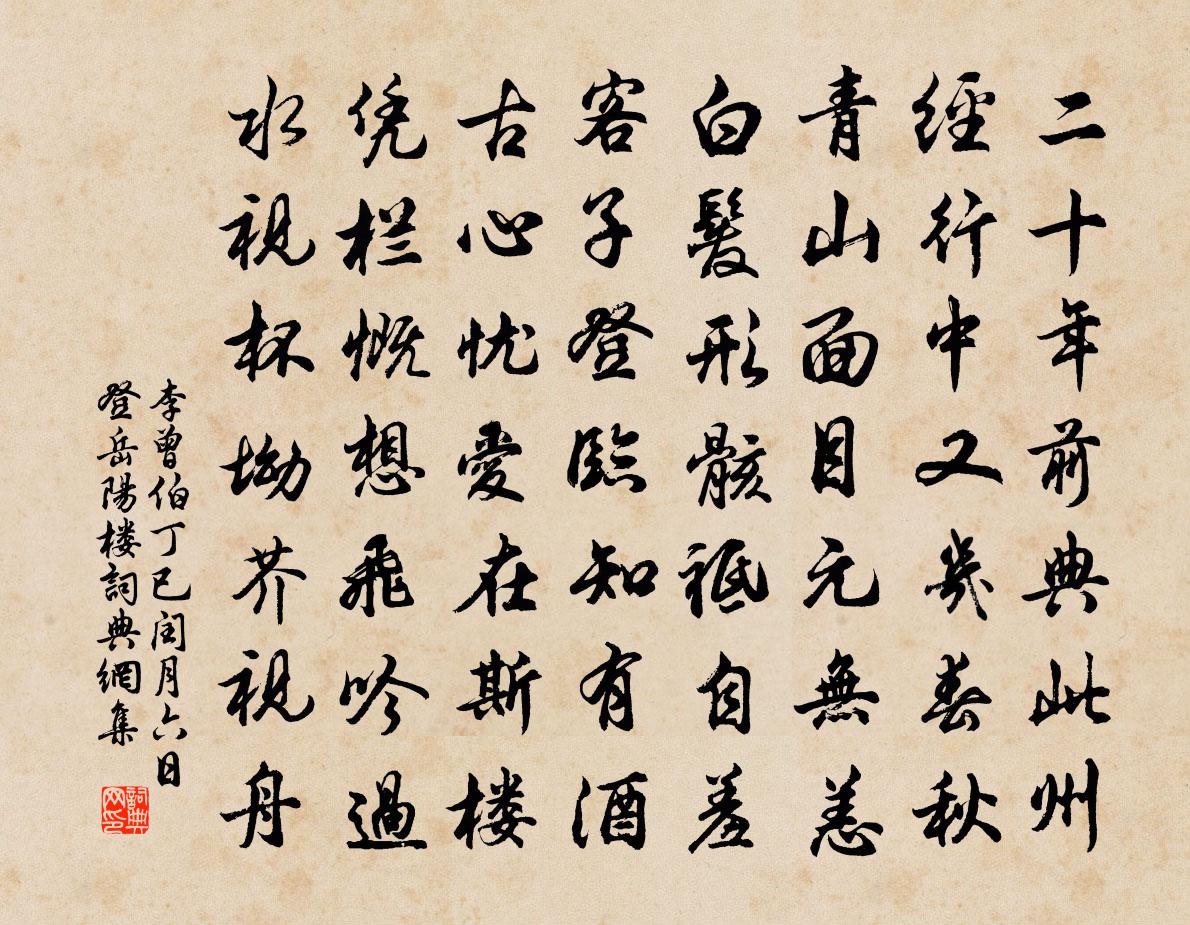 二十年前典此州
經行中又幾春秋
青山面目元無恙
白髮形骸祗自羞
客子登臨知有酒
古心忧愛在斯楼
凭栏慨想飛吟過
水視杯坳芥視舟
李曾伯丁巳闰月六日
登岳陽楼詞典網集
詞典网印